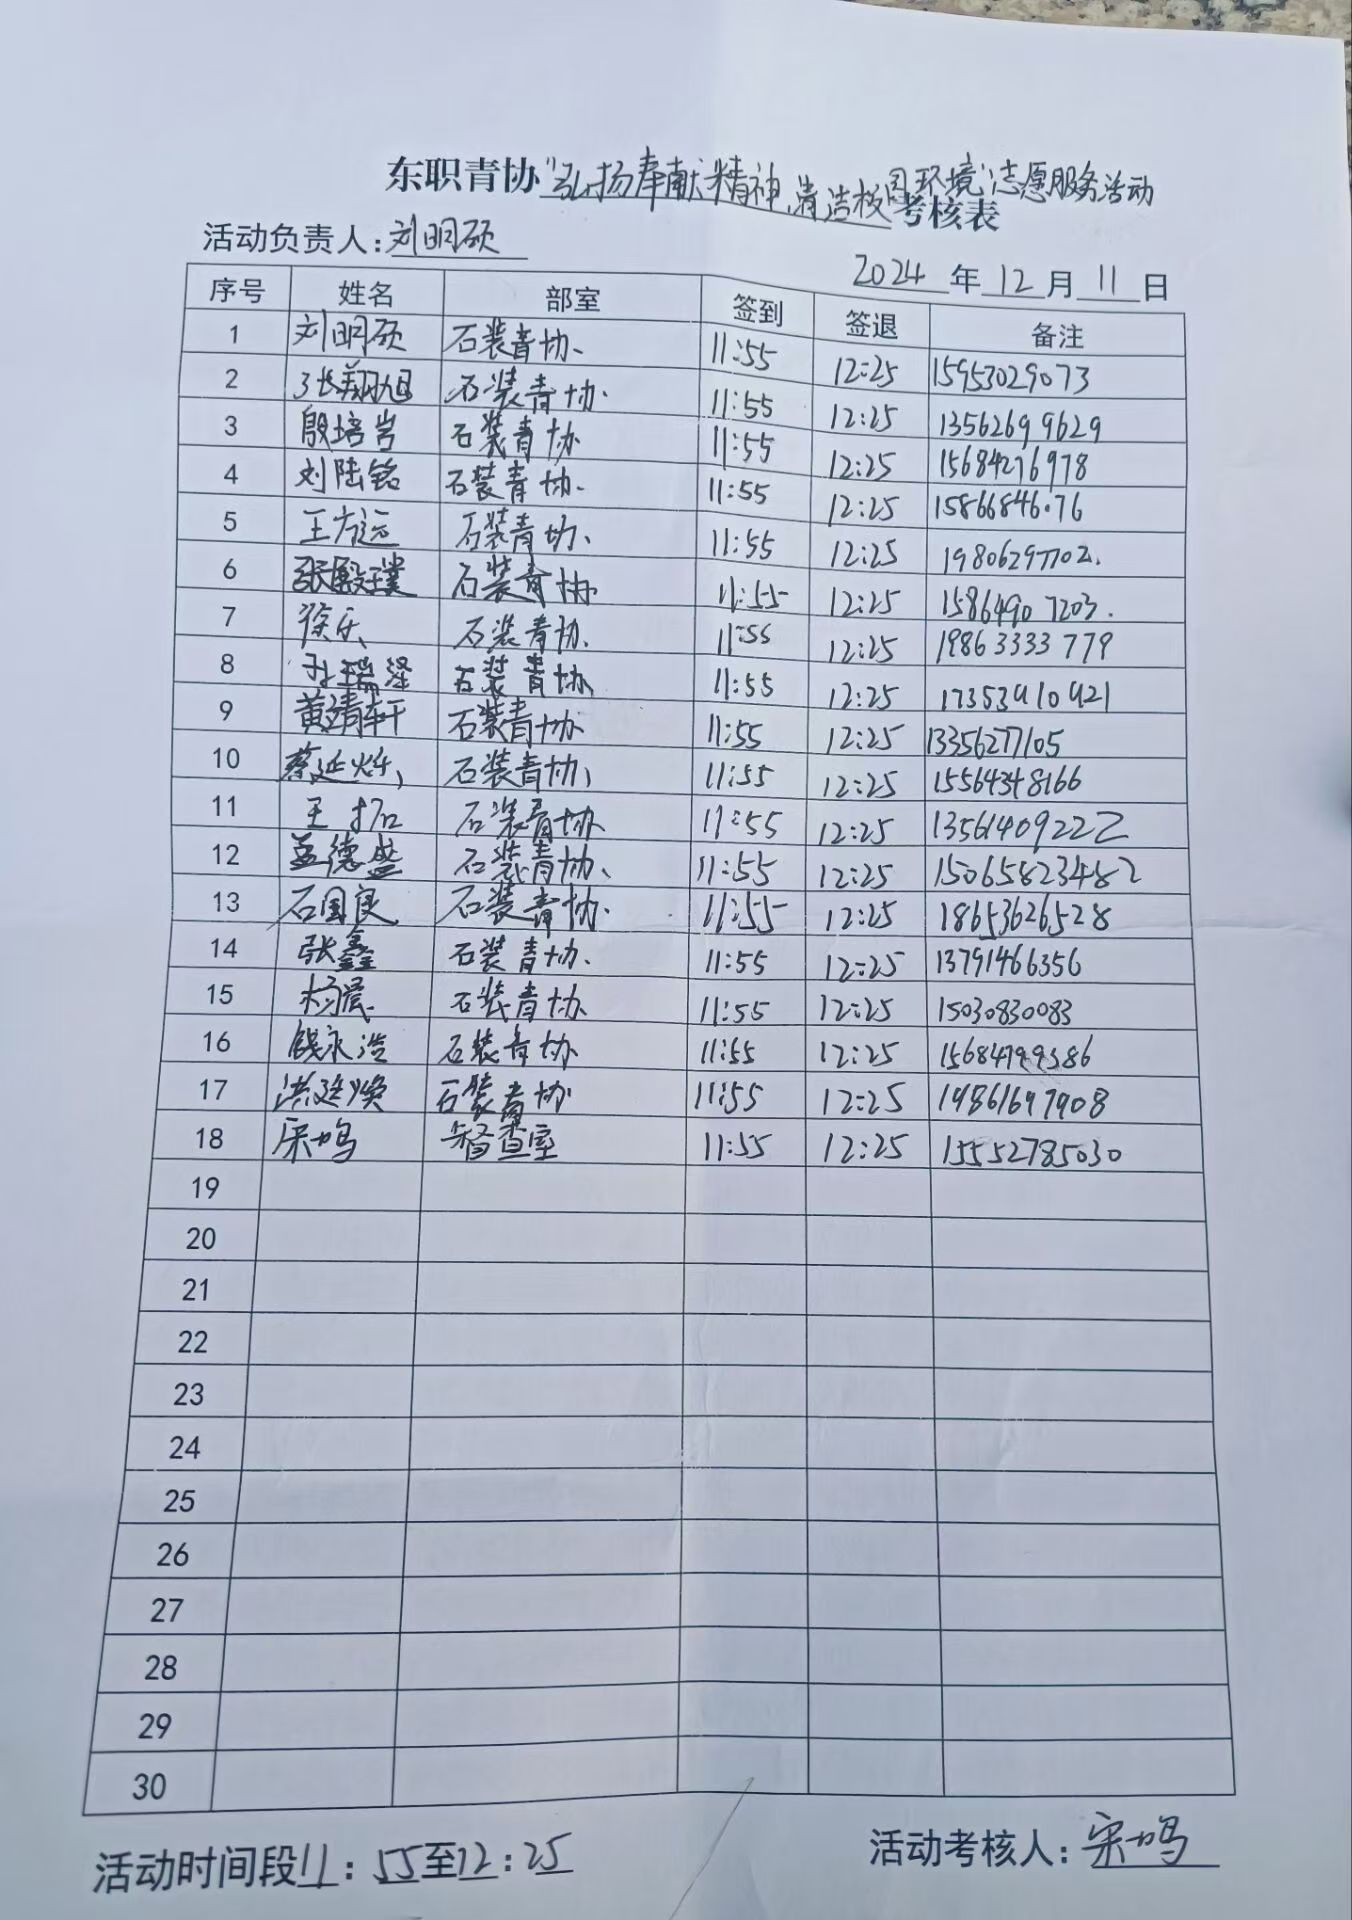 东职青协“弘扬奉献精神,清洁校园环境”志愿服务活动考核表
活动负责人:刘明硕
2024年12月11日
序号 姓名 部室 签到 签退 备注
1 刘明硕 石装青协 11:55 12:25 15953029073
2 张翔旭 石装青协 11:55 12:25 13562699629
3 殷培岩 石装青协 11:55 12:25 15684276978
4 刘陆铭 石装青协 11:55 12:25 15866846076
5 王方远 石装青协 11:55 12:25 19806297702
6 石装青协 11:55 12:25 15864907203
7 徐乐 石装青协 11:55 12:25 19863333779
8 孙瑞泽 石装青协 11:55 12:25 17353910921
9 黄靖轩 石装青协 11:55 12:25 13356277105
10 蔡延烁 石装青协 11:55 12:25 15564348166
11 王拓 石装青协 11:55 12:25 13561409222
12 孟德盛 石装青协 11:55 12:25 15065823482
13 石国良 石装青协 11:55 12:25 18653626528
14 张鑫 石装青协 11:55 12:25 13791466356
15 杨晨 石装青协 11:55 12:25 15030830083
16 钱永浩 石装青协 11:55 12:25
17 洪廷焕 石装青协 11:55 12:25
18 宋鸣 督查室 11:55 12:25 15552785030
19
20
21
22
23
24
25
26
27
28
29
30
活动时间段11:55至12:25
活动考核人:宋鸣